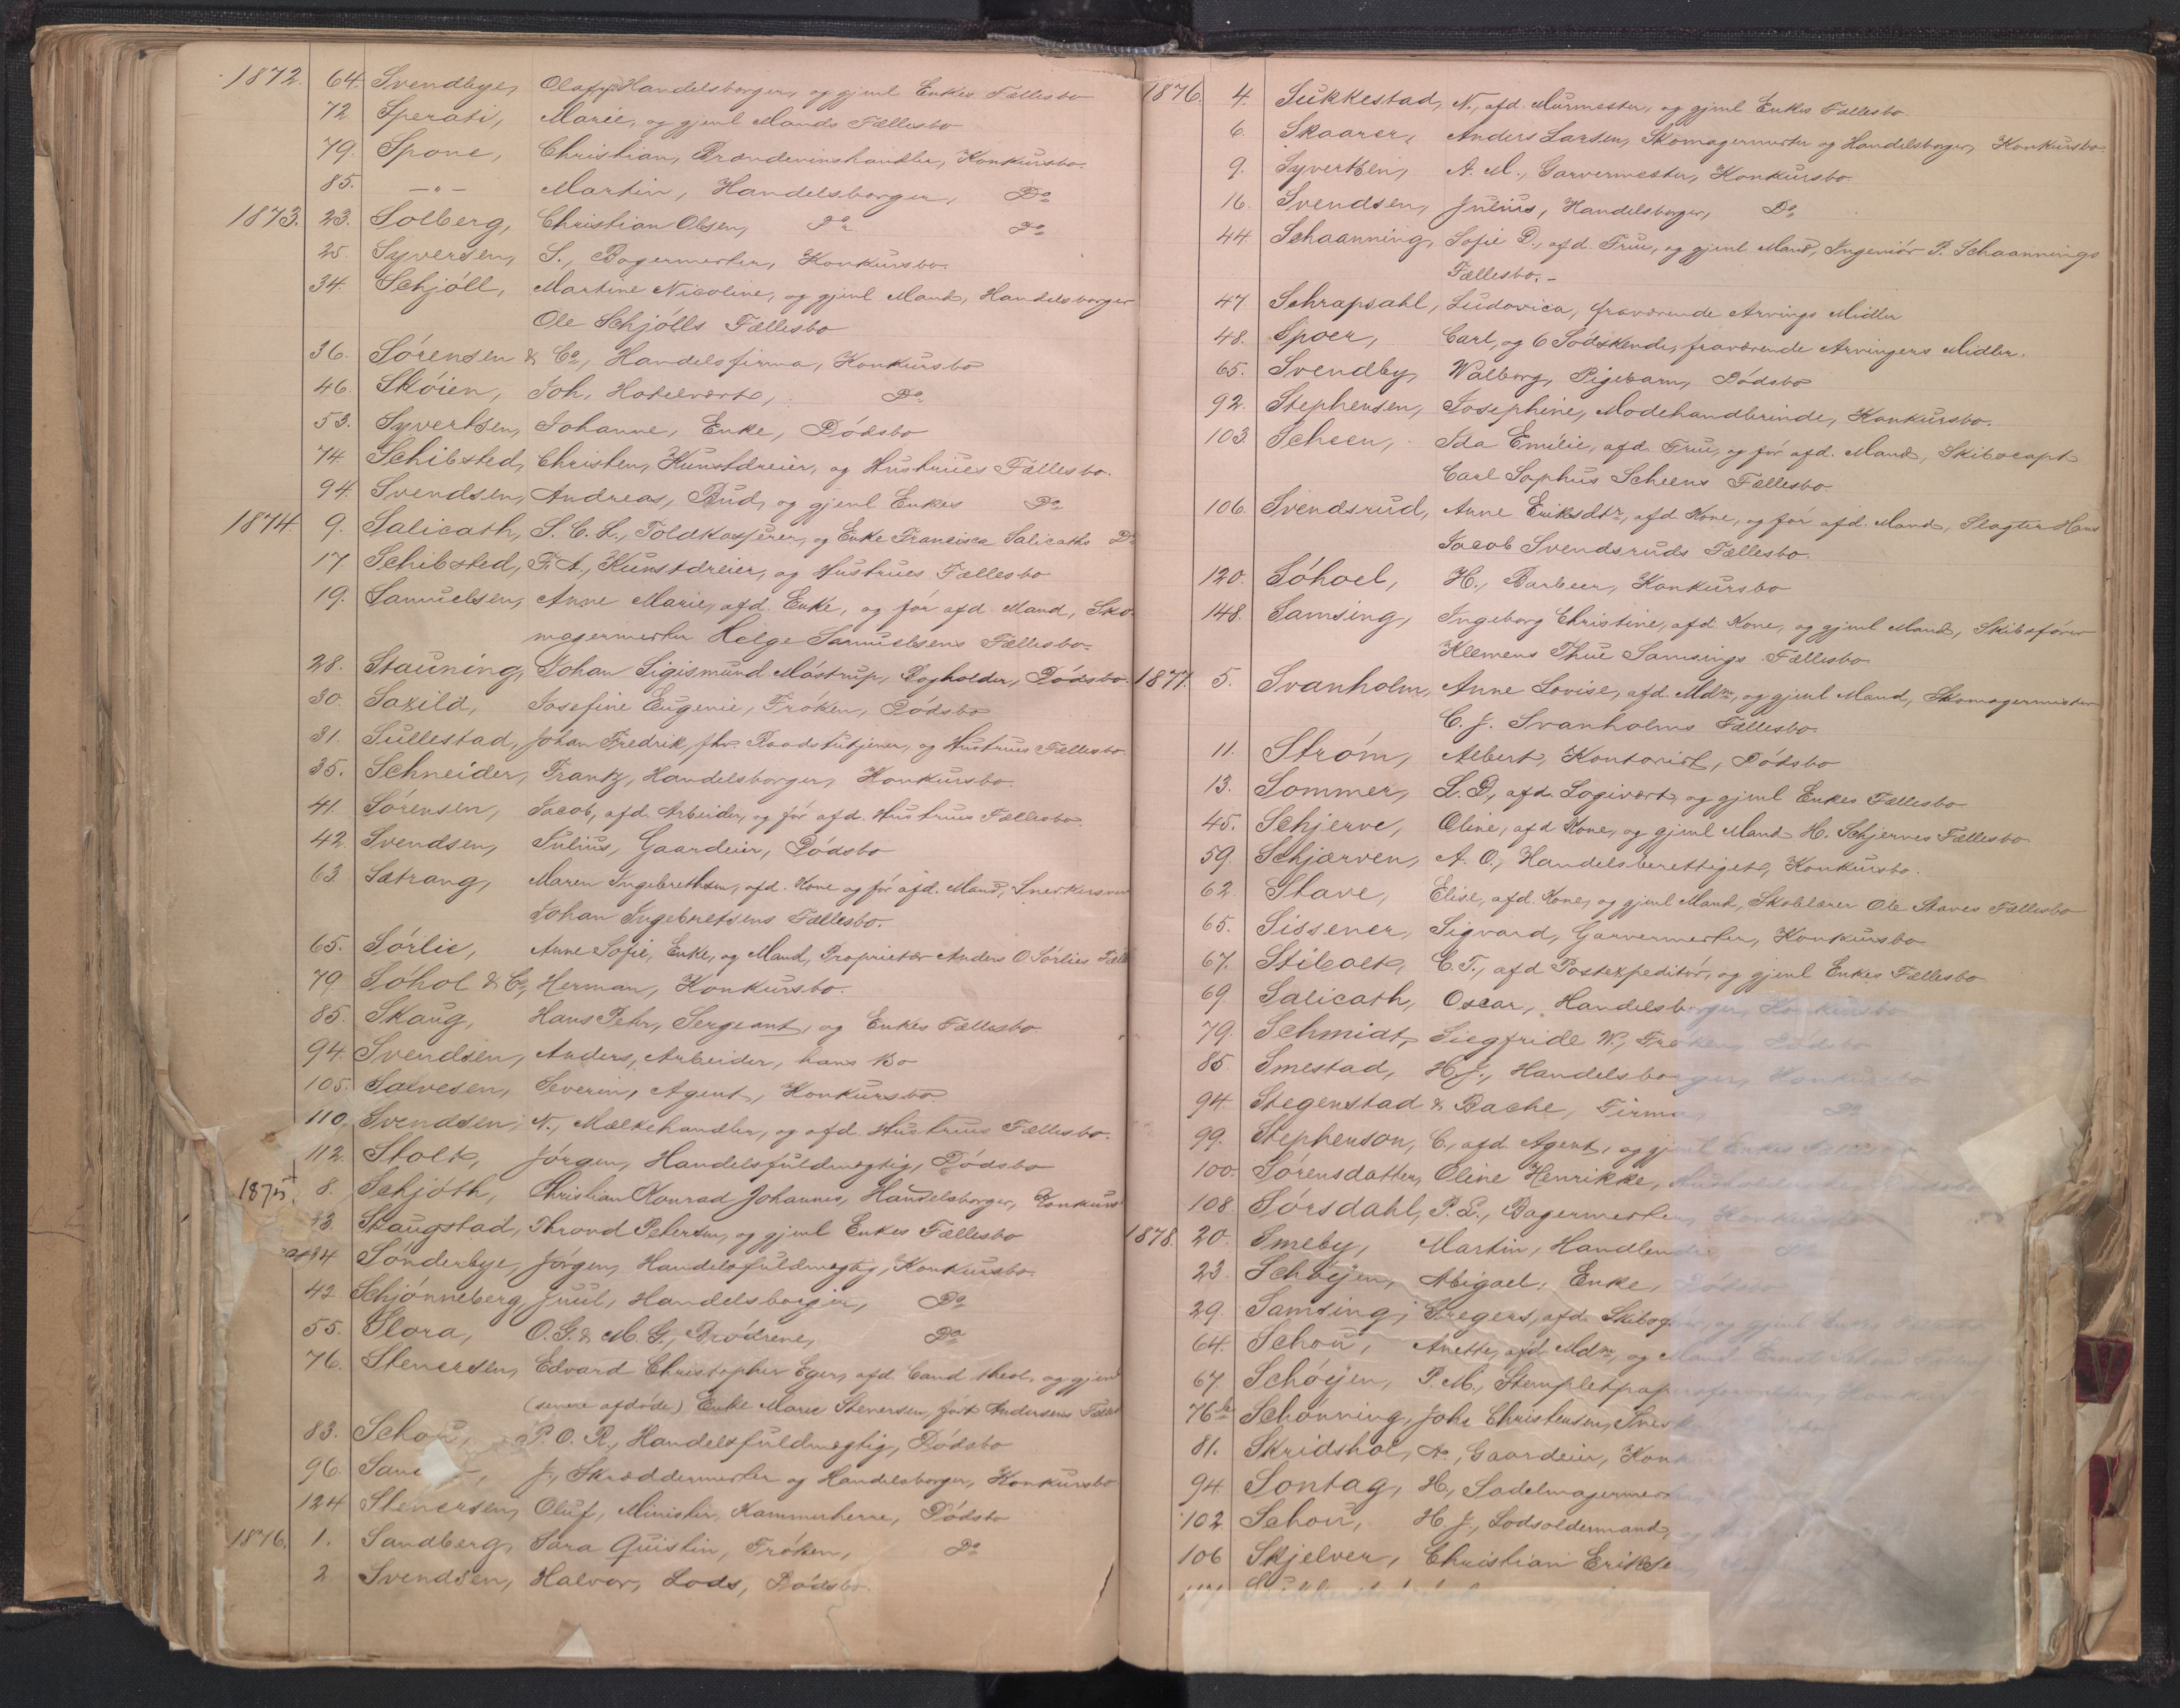 1872. 64. Svendbye, Olaf, Handelsborger, og gjenl Enkes Fællesbo
72 Sperati, Marie, og gjenl Mands Fællesbo
79. Spone, Christian, Brændevinshandler, Konkursbo.
85. — " — Martin, Handelsborger, Do
1873. 23. Solberg, Christian Olsen, Do Do
25 Syversen, S., Bagermester, Konkursbo.
34. Schjöll, Martine Nicoline, og gjenl Mand, Handelsborger
Ole Schjölls Fællesbo
36. Sörensen & Co, Handelsfirma, Konkursbo
46. Sköien, Joh, Hotelvært, Do
53. Syvertsen, Johanne, Enke, Dödsbo
74. Schibsted, Christen, Kunstdreier, og Hustrues Fællesbo.
94. Svendsen, Andreas, Bud, og gjenl Enkes Do
1874. 9. Salicath, S. C. L., Toldkasserer, og Enke Francisca Salicaths Do
17 Schibsted, F. A., Kunstdreier, og Hustrues Fællesbo
19. Samuelsen, Anne Marie, afd. Enke, og för afd Mand, Sko-
magermester Helge Samuelsens Fællesbo.
28. Stauning, Johan Sigismund Måstrup, Bogholder, Dödsbo.
30. Saxild, Josefine Eugenie, Fröken, Dödsbo
31. Sullestad, Johan Fredrik, fhv. Raadstutjener, og Hustrues Fællesbo
35. Schneider, Frantz, Handelsborger, Konkursbo.
41. Sörensen, Jacob, afd. Arbeider, og för afd. Hustrues Fællesbo.
42. Svendsen, Julius, Gaardeier, Dödsbo
63. Sætrang, Maren Ingebrethsen, afd. Kone og för afd. Mand,
Johan Ingebretsens Fællesbo.
65. Sörlie, Anne Sofie, Enke, og Mand, Proprietær Anders O. Sörlies
79 Söhol & Co, Herman, Konkursbo.
85. Skaug, Hans Peter, Sergeant, og Enkes Fællesbo
94. Svendsen, Anders, Arbeider, hans Bo
105. Salvesen, Severin, Agent, Konkursbo
110. Svendsen, N., Melkehandler, og afd. Hustrues Fællesbo.
112. Stolt, Jörgen, Handelsfuldmegtig, Dödsbo
1875 8. Schjöth, Christian Konrad Johannes, Handelsborger, Konkurs
Skaugstad, Thrond Petersen, og gjenl Enkes Fællesbo
34 Sönderbye, Jörgen, Handelsfuldmegtig, Konkursbo.
42. Schjönneberg, Juul, Handelsborger, Do
55. Slora, O. G. & M. G., Brödrene, Do
76. Stenersen, Edvard Christopher Eger, afd. Cand theol, og gjenl
(senere afdöde) Enke Marie Stenersen, födt Andersens
83. P. O. R., Handelsfuldmegtig, Dödsbo
96. J., Skræddermester og Handelsborger, Konkursbo
124 Stenersen, Oluf, Minister, Kammerherre, Dödsbo
1876. 1. Sandberg, Sara Quistin, Fröken, Do
2 Svendsen, Halvor, Lods, Dödsbo.
1876. 4. Sukkestad, N., afd. Murmester, og gjenl Enkes Fællesbo.
6. Skaarer, Anders Larsen, Skomagermester og Handelsborger, Konkursbo.
9. Syvertsen, A. M., Garvermester, Konkursbo
16. Svendsen, Julius, Handelsborger, Do
44 Schaanning, Sofie D., afd. Frue, og gjenl Mand, Ingeniör P. Schaannings
Fællesbo. –
47. Schrapsahl, Ludovica, fraværende Arvings Midler
48. Spoer, Carl, og 6 Södskende, fraværende Arvingers Midler.
65. Svendby, Walborg, Pigebarn, Dödsbo
92. Stephensen, Josephine, Modehandlerinde, Konkursbo.
103 Scheen, Ida Emilie, afd. Frue, og för afd. Mand, Skibscapt
Carl Sophus Scheens Fællesbo.
106. Svendsrud, Anne Eriksdtr, afd. Kone, og för afd. Mand, Slagter Hans
Jacob Svendsruds Fællesbo.
120. Söhoel, H., Barbeer, Konkursbo
148. Samsing, Ingeborg Christine, afd. Kone, og gjenl Mand, Skibsförer
Klemens Thue Samsings Fællesbo
1877. 5. Svanholm, Anne Lovise, afd. Mdm, og gjenl Mand, Skomagermester
C. J. Svanholms Fællesbo.
11. Ström, Albert, Kontorist, Dödsbo
13. Sommer, L. D., afd. Logivært, og gjenl Enkes Fællesbo
45. Schjerve, Oline, afd Kone, og gjenl Mand H. Schjerves Fællesbo.
59. Schjærven, A. O., Handelsberettiget, Konkursbo.
62 Stave, Elise, afd. Kone, og gjenl Mand, Skolelærer Ole Staves Fællesbo
65. Sissener, Sigvard, Garvermester, Konkursbo
67. Stibolt, C. T., afd Postexpeditör, og gjenl Enkes Fællesbo
69 Salicath, Oscar, Handelsborger, Konkursbo
79. Schmidt, Siegfride W., Fröken, Dödsbo
85. Smestad, H. J., Handelsborger, Konkursbo
94. Stegenstad & Bache, Firma, Do
99. Stephenson, C., afd. Agent, og gjenl Enkes Fællesbo
100. Sörensdatter, Oline Henrikke, Dödsbo
108. Sörsdahl, P. L., Bagermester, Konkursbo
1878. 20. Smeby, Martin, Handlende Do
23. Schöyen, Abigael, Enke, Dödsbo
29. Samsing, Gregers, afd. og gjenl Enkes
64. Schou, Anette, afd. Mdm, og Mand Ernst Schous
67. Schöyen, P. M., Stempletpapirsforvalter,
76 b Schönning, Johs Christensen,
81. Skridshol, A., Gaardeier,
94. Sontag, H., Sadelmagermester
102 Schou, H. J., Lodsoldermand,
106 Skjelver, Christian